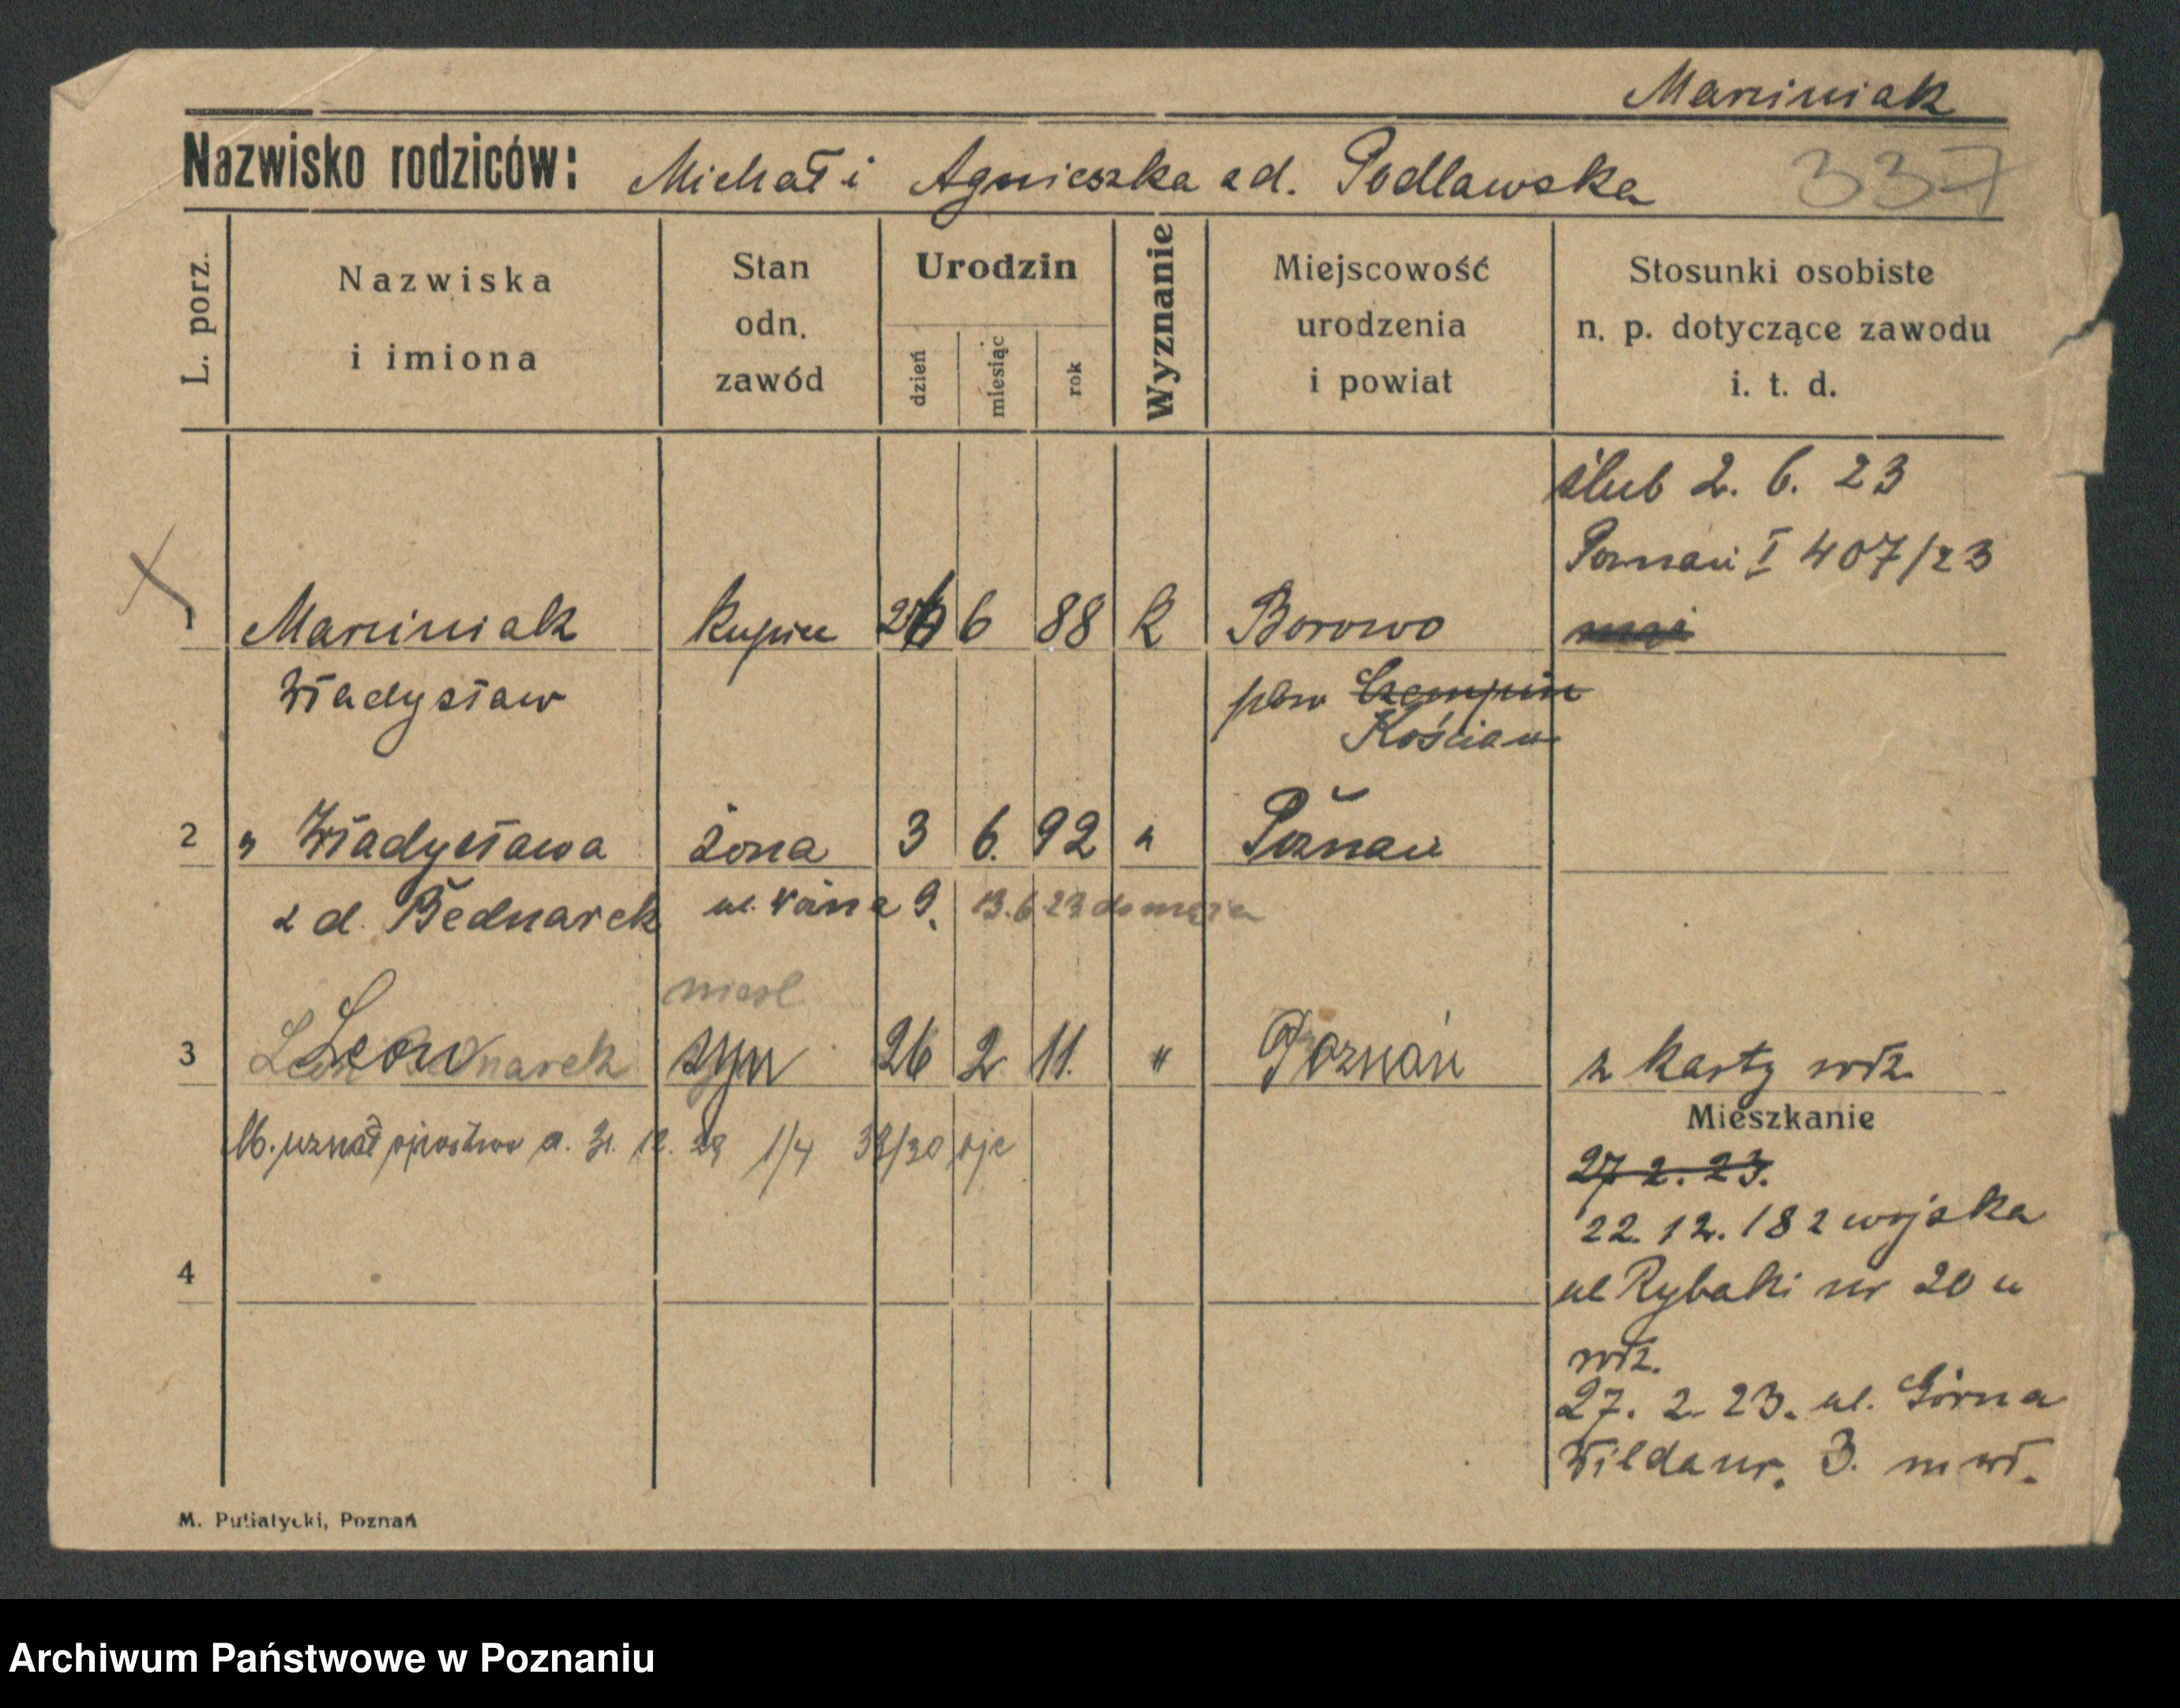 Marciniak
Nazwisko rodziców: Michał i Agnieszka z d. Podlawska 337
L. porz. Nazwiska i imiona Stan odn. zawód Urodzin dzień miesiąc rok Wyznanie Miejscowość urodzenia i powiat Stosunki osobiste n. p. dotyczące zawodu i. t. d.
ślub 2. 6. 23
Poznań I 407/23
1 Marciniak kupiec 26 6 88 k Borowo
Władysław pow Czempin
Kościan
2 " Władysława żona 3 6. 92 " Poznań
z d. Bednarek ul. 9. 13.6 23 do męża
niesl
3 Leon Bednarek syn 26 2 11. " Poznań z karty wł.
Mieszkanie
M. uznał ojcostwo d. 31. 12. 29 1/4 38/30
27 2. 23.
22. 12. 18 z wojska
4 ul Rybaki nr 20 u
wł.
27. 2. 23. ul. Górna
Wilda nr. 3. m wł.
M. Putiatycki, Poznań
Archiwum Państwowe w Poznaniu